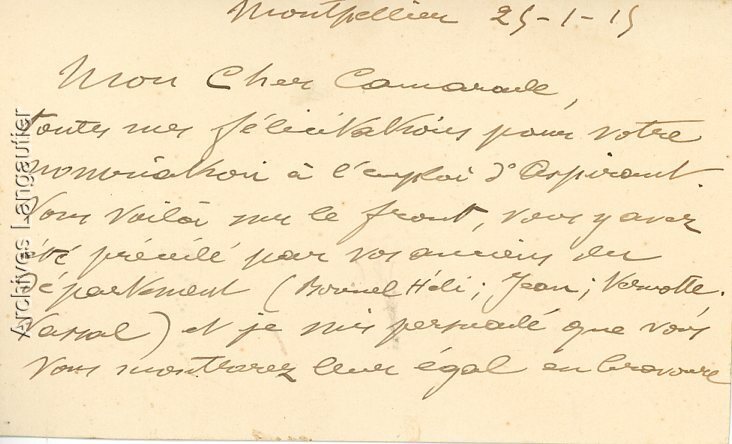 Montpellier 25-1-15
Mon Cher Camarade,
toutes mes félicitations pour votre
nomination à l'emploi d'Aspirant.
Vous voilà sur le front, vous y avez
été précédé par vos anciens du
département (Bonnel Héli; Jean; Vermotte.
Vassal) et je suis persuadé que vous
vous montrerez leur égal en bravoure
Archives Langautier